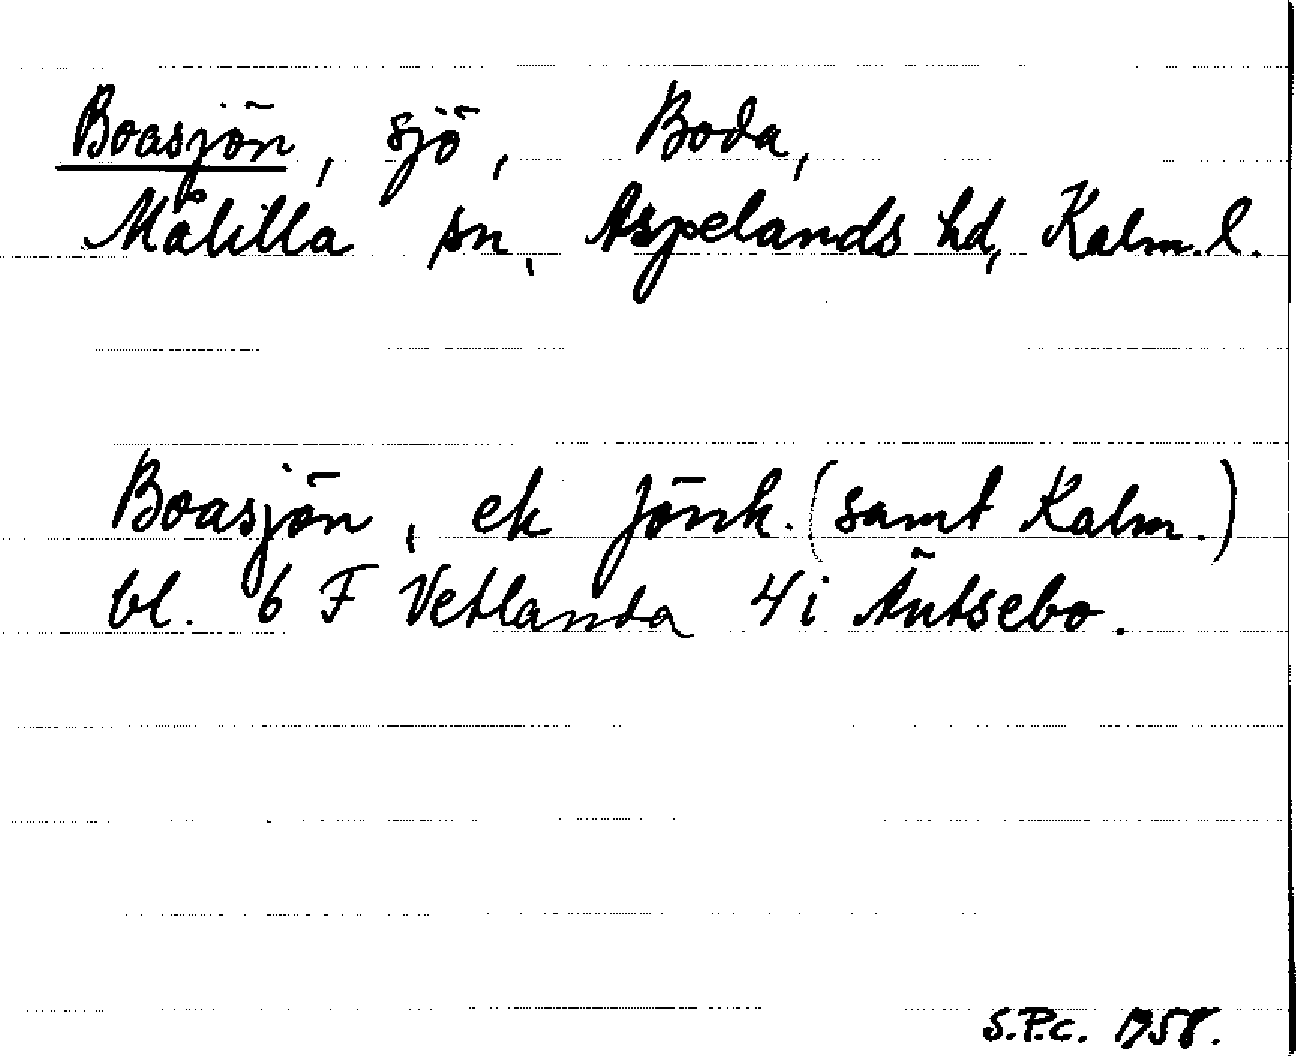 Boasjön, sjö, Boda,
Målilla sn, Aspelands hd, Kalm. l.
Boasjön, ek Jönk. (samt Kalm.)
bl. 6 F Vetlanda 4 i Äntsebo.
S.P.C. 1958.